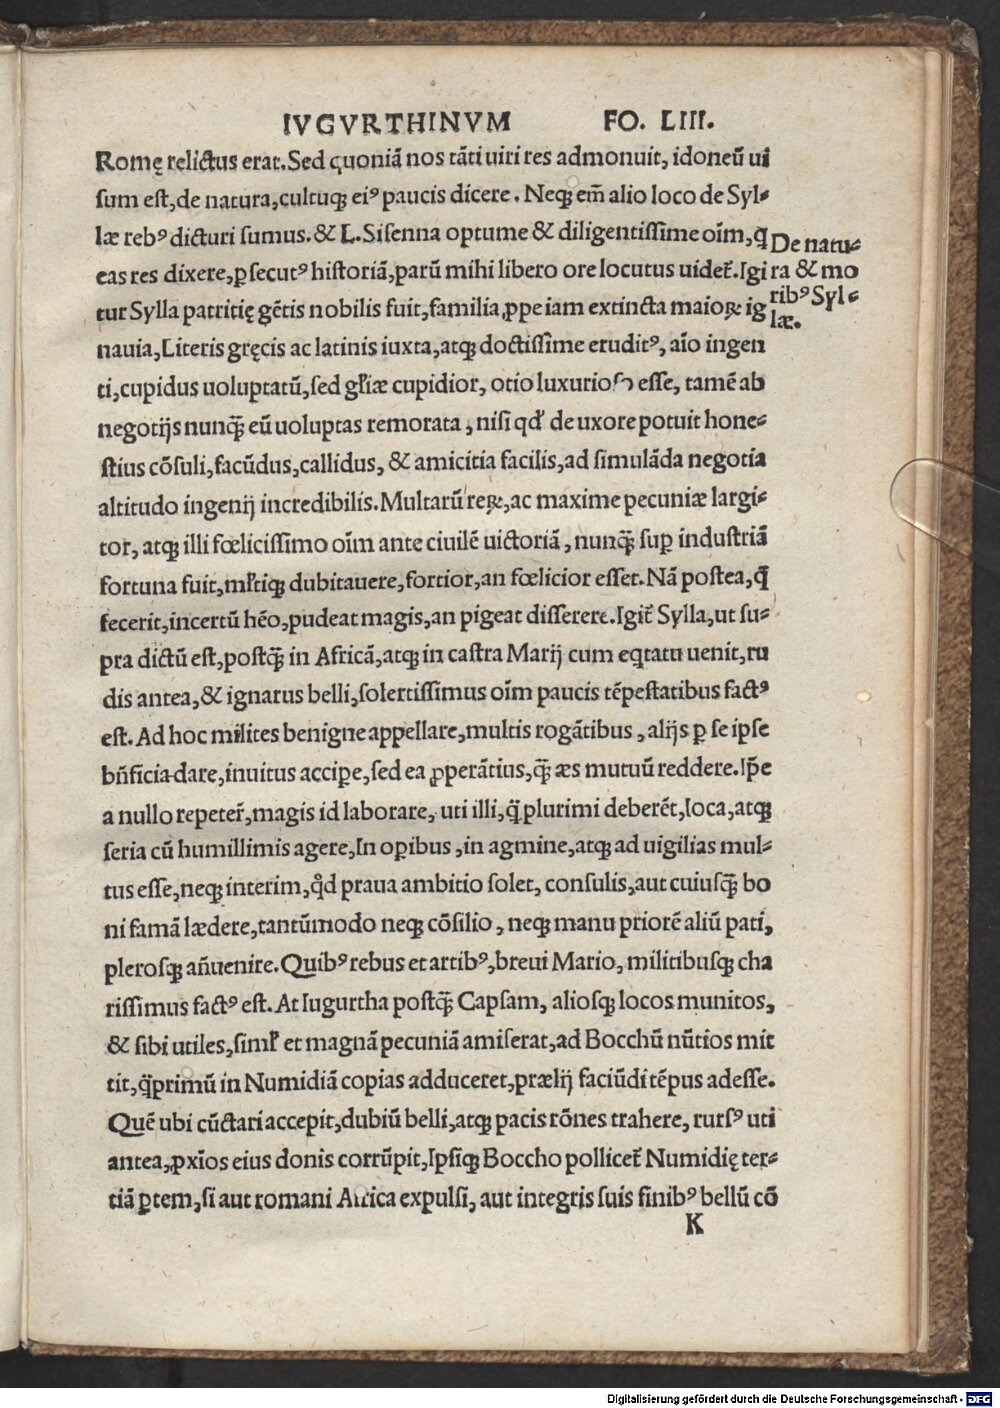 IVGVRTHINVM FO. LIII.
Romę relictus erat. Sed quoniã nos tãti uiri res admonuit, idoneũ ui
sum est, de natura, cultuqꝫ eiꝰ paucis dicere. Neqꝫ em̃ alio loco de Syl⸗
læ rebꝰ dicturi sumus. & L. Sisenna optume & diligentissime oĩm, q̃
eas res dixere, ꝑsecutꝰ historiã, parũ mihi libero ore locutus uidet̃. Igi
tur Sylla patritię gẽtis nobilis fuit, familia, ꝓpe iam extincta maioꝝ ig
nauia, Literis gręcis ac latinis iuxta, atqꝫ doctissime eruditꝰ, aĩo ingen
ti, cupidus uoluptatũ, sed gl̃iæ cupidior, otio luxurioso esse, tamẽ ab
negotijs nunqꝫ̃ eũ uoluptas remorata, nisi qđ de uxore potuit hone⸗
stius cõsuli, facũdus, callidus, & amicitia facilis, ad simulãda negotia
altitudo ingenij incredibilis. Multarũ reꝝ, ac maxime pecuniæ largi⸗
tor, atqꝫ illi fœlicissimo oĩm ante ciuilẽ uictoriã, nunqꝫ̃ suꝑ industriã
fortuna fuit, ml̃tiqꝫ dubitauere, fortior, an fœlicior esset. Nã postea, q̃
fecerit, incertũ hẽo, pudeat magis, an pigeat disserere. Igit̃ Sylla, ut su⸗
pra dictũ est, postqꝫ̃ in Africã, atqꝫ in castra Marij cum eqtatu uenit, ru
dis antea, & ignarus belli, solertissimus oĩm paucis tẽpestatibus factꝰ
est. Ad hoc milites benigne appellare, multis rogãtibus, alijs ꝑ se ipse
bñficia dare, inuitus acciꝑe, sed ea ꝓperãtius, qꝫ̃ æs mutuũ reddere. Ip̃e
a nullo repeter̃, magis id laborare, uti illi, q̃ plurimi deberẽt, Ioca, atqꝫ
seria cũ humillimis agere, In oꝑibus, in agmine, atqꝫ ad uigilias mul⸗
tus esse, neqꝫ interim, qđ praua ambitio solet, consulis, aut cuiusqꝫ̃ bo
ni famã lædere, tantũmodo neqꝫ cõsilio, neqꝫ manu priorẽ aliũ pati,
plerosqꝫ añuenire. Quibꝰ rebus et artibꝰ, breui Mario, militibusqꝫ cha
rissimus factꝰ est. At Iugurtha postqꝫ̃ Capsam, aliosqꝫ locos munitos,
& sibi utiles, siml̃ et magnã pecuniã amiserat, ad Bocchũ nũtios mit
tit, q̃primũ in Numidiã copias adduceret, prælij faciũdi tẽpus adesse.
Quẽ ubi cũctari accepit, dubiũ belli, atqꝫ pacis rõnes trahere, rursꝰ uti
antea, ꝓxĩos eius donis corrũpit, Ipsiqꝫ Boccho pollicet̃ Numidię ter⸗
tiã ꝑtem, si aut romani Africa expulsi, aut integris suis finibꝰ bellũ cõ
K
De natu⸗
ra & mo
ribꝰ Syl⸗
læ.
Digitalisierung gefördert durch die Deutsche Forschungsgemeinschaft - DFG